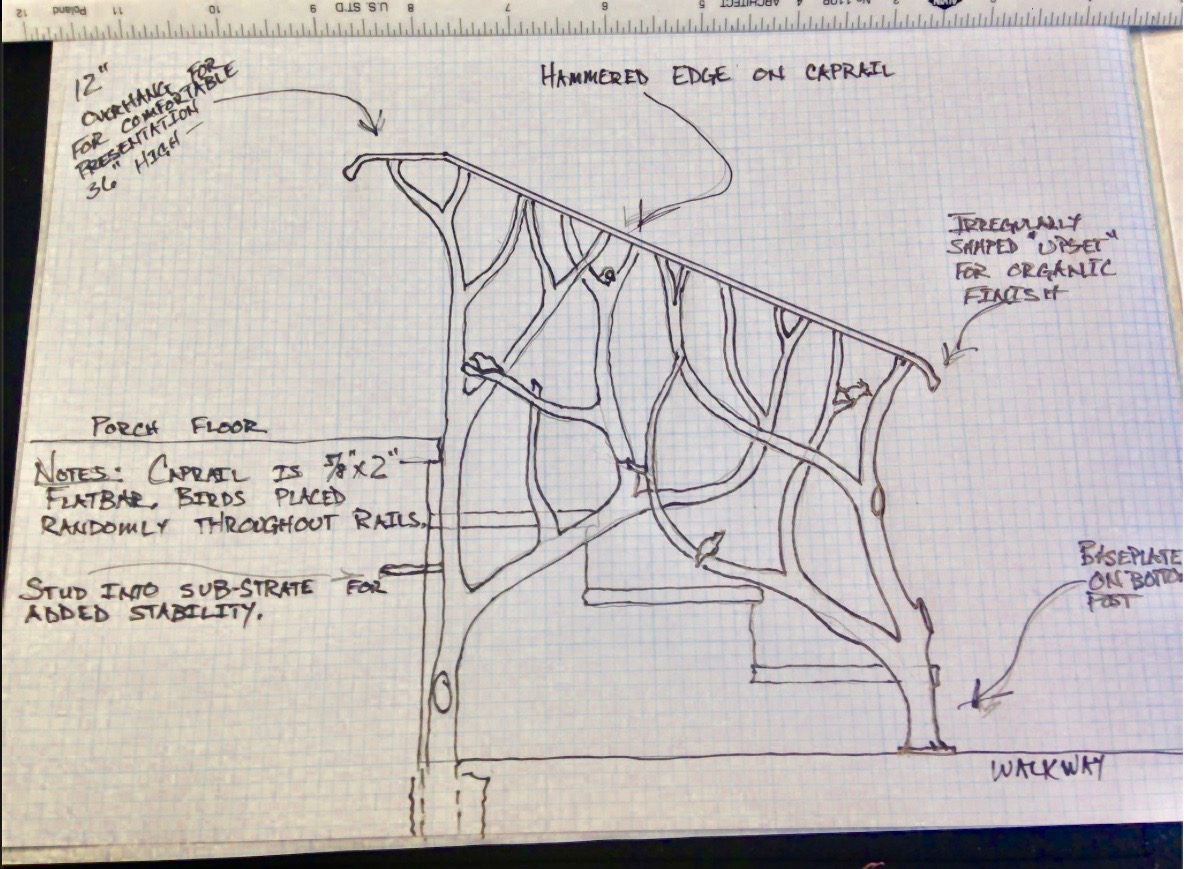 12 11 10 9 U.S. STD. 8 7 6 5 ARCHITECT 4
Poland
12"
OVERHANG FOR
FOR COMFORTABLE
PRESENTATION
36" HIGH —
HAMMERED EDGE ON CAPRAIL
IRREGULARLY
SHAPED "UPSET"
FOR ORGANIC
FINISH
PORCH FLOOR
NOTES: CAPRAIL IS 5/8"X2"
FLATBAR. BIRDS PLACED
RANDOMLY THROUGHOUT RAILS.
STUD INTO SUB-STRATE FOR
ADDED STABILITY.
BASEPLATE
ON BOTTO
POST
WALKWAY